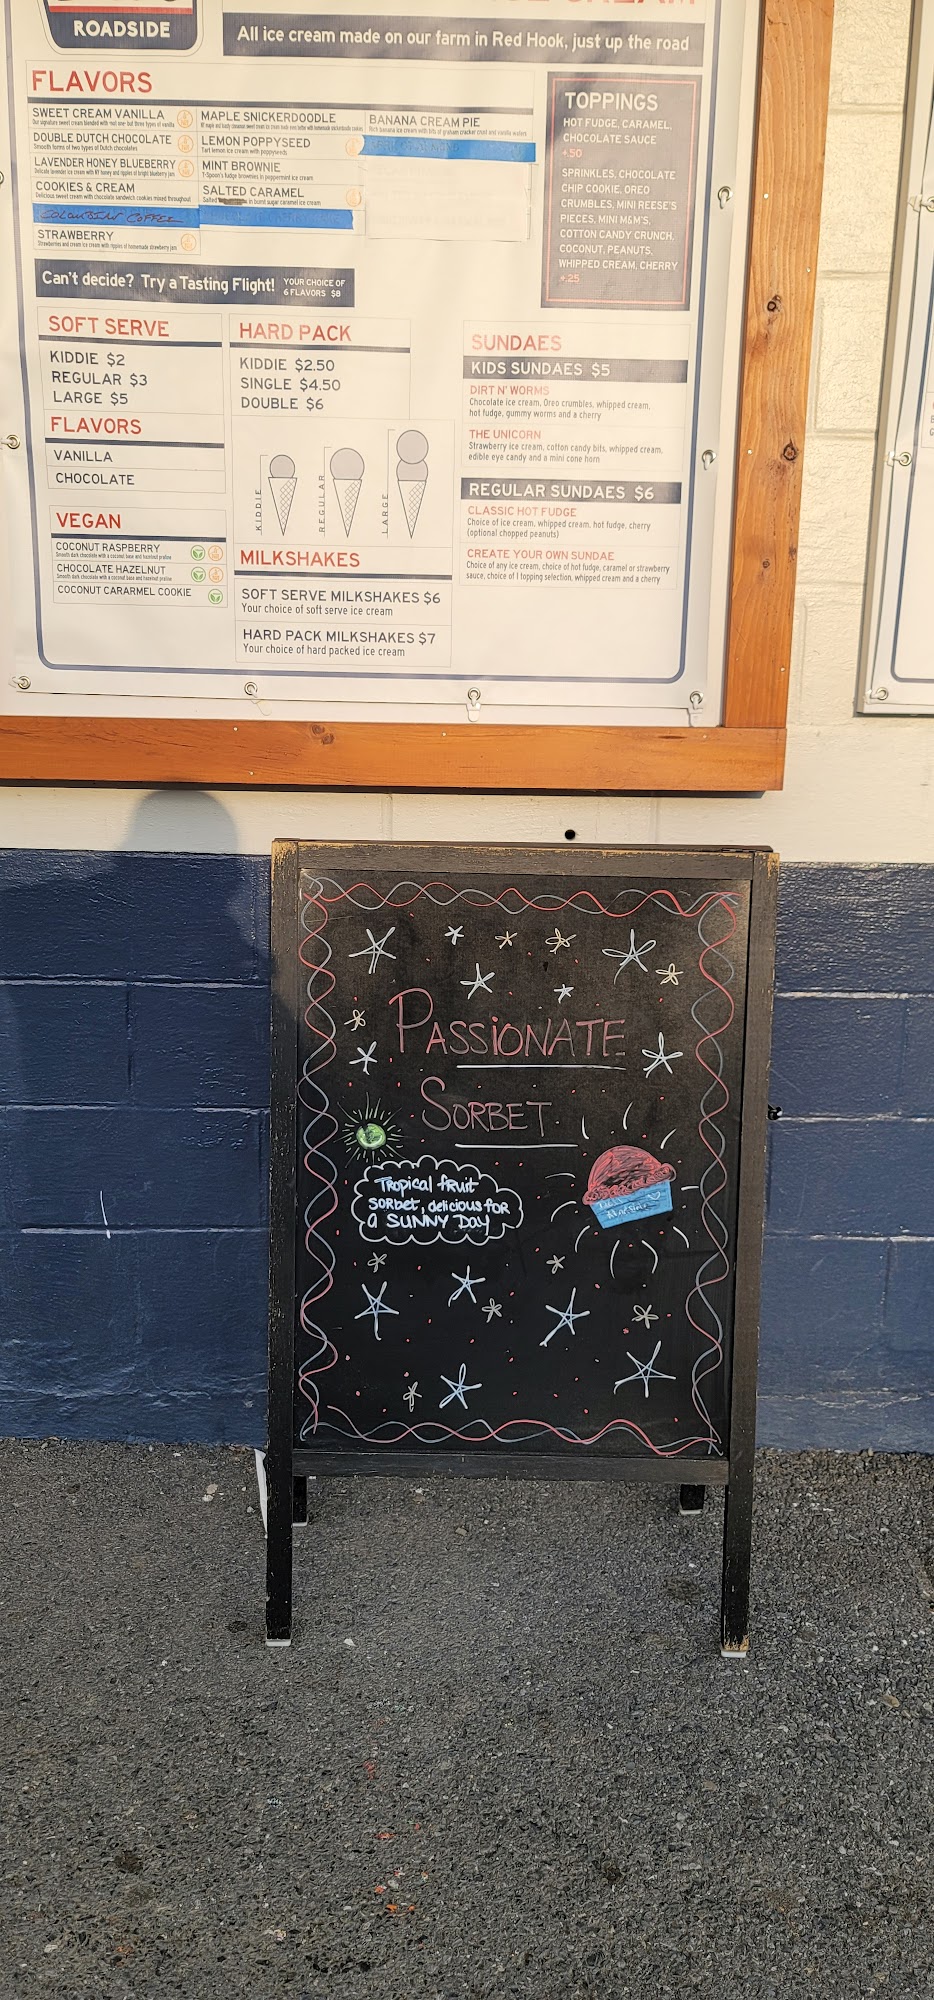 ROADSIDE
All ice cream made on our farm in Red Hook, just up the road
FLAVORS
SWEET CREAM VANILLA
Our signature sweet cream blended with not one- but three types of vanilla
DOUBLE DUTCH CHOCOLATE
Smooth forms of two types of Dutch chocolates
LAVENDER HONEY BLUEBERRY
Delicate lavender ice cream with NY honey and ripples of bright blueberry jam
COOKIES & CREAM
Delicious sweet cream with chocolate sandwich cookies mixed throughout
COLOMBIAN COFFEE
STRAWBERRY
Strawberries and cream ice cream with ripples of homemade strawberry jam
MAPLE SNICKERDOODLE
LEMON POPPYSEED
Tart lemon ice cream with poppyseeds
MINT BROWNIE
T-Spoon's fudge brownies in peppermint ice cream
SALTED CARAMEL
Salted in burnt sugar caramel ice cream
BANANA CREAM PIE
Rich banana ice cream with bits of graham cracker crust and vanilla wafers
TOPPINGS
HOT FUDGE, CARAMEL,
CHOCOLATE SAUCE
+.50
SPRINKLES, CHOCOLATE
CHIP COOKIE, OREO
CRUMBLES, MINI REESE'S
PIECES, MINI M&M'S,
COTTON CANDY CRUNCH,
COCONUT, PEANUTS,
WHIPPED CREAM, CHERRY
+.25
Can't decide? Try a Tasting Flight! YOUR CHOICE OF
6 FLAVORS $8
SOFT SERVE
KIDDIE $2
REGULAR $3
LARGE $5
FLAVORS
VANILLA
CHOCOLATE
VEGAN
COCONUT RASPBERRY
Smooth dark chocolate with a coconut base and hazelnut praline
CHOCOLATE HAZELNUT
Smooth dark chocolate with a coconut base and hazelnut praline
COCONUT CARARMEL COOKIE
HARD PACK
KIDDIE $2.50
SINGLE $4.50
DOUBLE $6
KIDDIE
REGULAR
LARGE
MILKSHAKES
SOFT SERVE MILKSHAKES $6
Your choice of soft serve ice cream
HARD PACK MILKSHAKES $7
Your choice of hard packed ice cream
SUNDAES
KIDS SUNDAES $5
DIRT N' WORMS
Chocolate ice cream, Oreo crumbles, whipped cream,
hot fudge, gummy worms and a cherry
THE UNICORN
Strawberry ice cream, cotton candy bits, whipped cream,
edible eye candy and a mini cone horn
REGULAR SUNDAES $6
CLASSIC HOT FUDGE
Choice of ice cream, whipped cream, hot fudge, cherry
(optional chopped peanuts)
CREATE YOUR OWN SUNDAE
Choice of any ice cream, choice of hot fudge, caramel or strawberry
sauce, choice of 1 topping selection, whipped cream and a cherry
PASSIONATE
SORBET
Tropical fruit
SORBET, delicious FOR
a SUNNY DAY